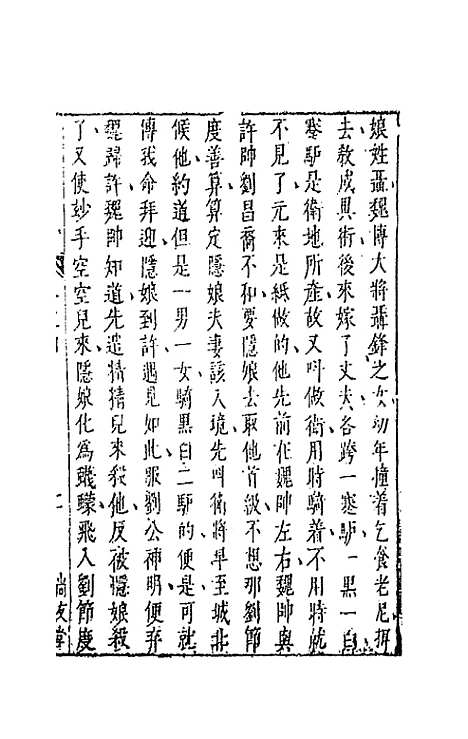 娘姓聶魏博大將聶鋒之女幼年撞着乞食老尼攝
去教成異術後來嫁了丈夫各跨一蹇驢一黑一白
蹇驢是衛地所產故又叫做衛用時騎着不用時就
不見了元來是紙做的他先前在魏帥左右魏帥與
許帥劉昌裔不和要隱娘去取他首級不想那劉節
度善算算定隱娘夫妻該入境先叫衛將早至城北
候他約道但是一男一女騎黑白二驢的便是可就
傳我命拜迎隱娘到許遇見如此服劉公神明便棄
魏歸許魏帥知道先遣精精兒來殺他反被隱娘殺
了又使妙手空空兒來隱娘化為蠛蠓飛入劉節度
尚友堂